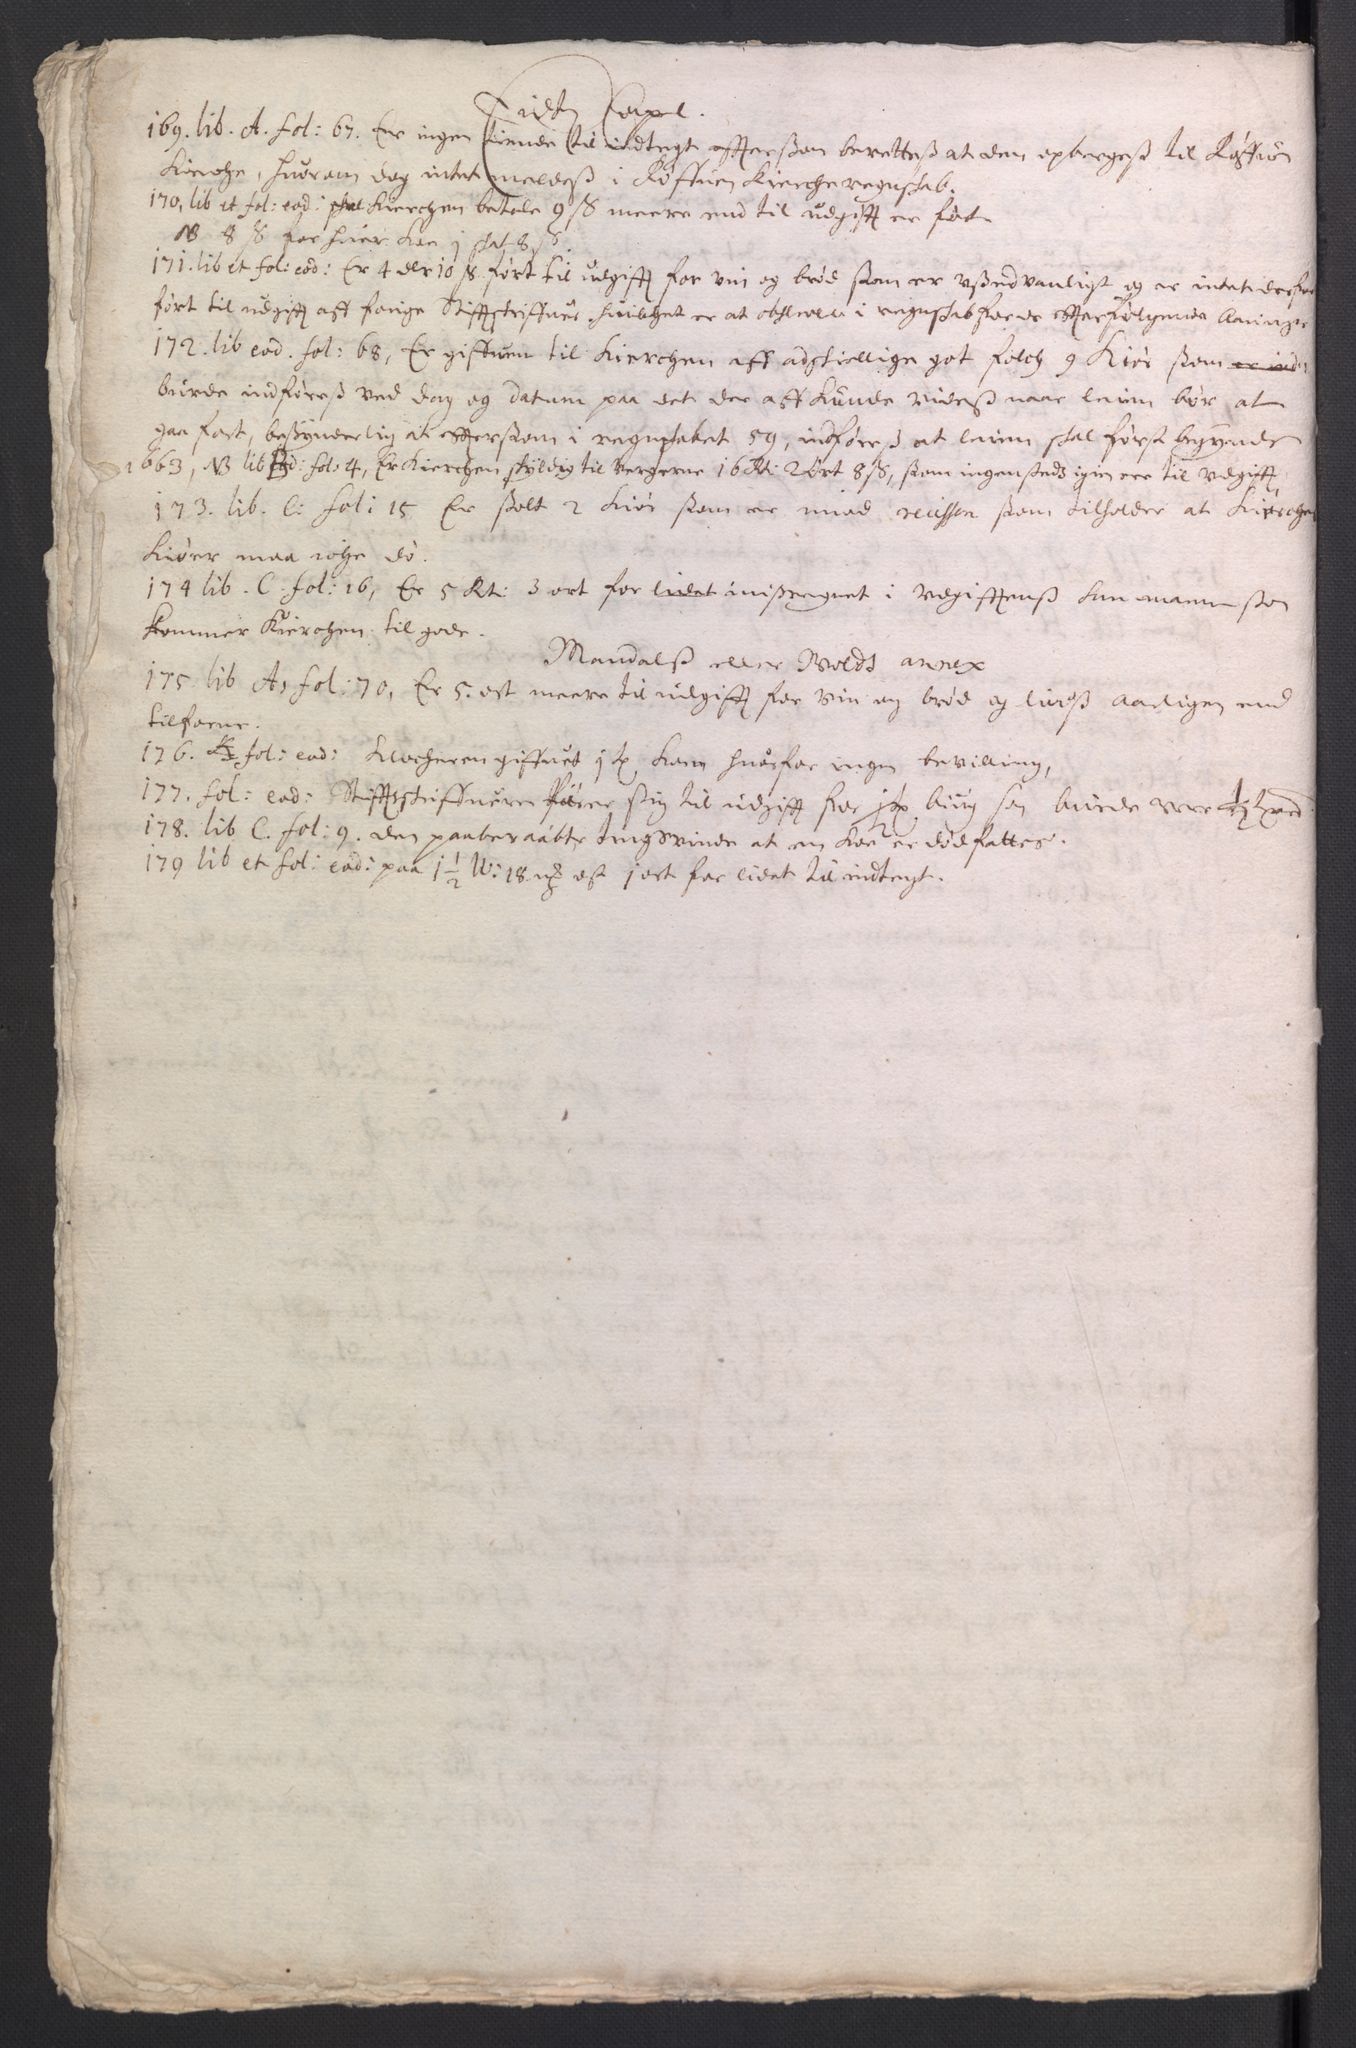 Eidtz Capel.
169. lib. A. fol: 67. Er ingen tiende til indtegt effterßom beretteß at den opbergeß til Røffuen
Kierche, huorom dog intet meldeß i Røffuen Kiercheregnskab.
170, lib et fol: eod: skal Kierchen betale 9 ß meere end til udgifft er ført
NB 8 ß for huer Koe j skal 8 ß.
171. lib et fol: eod: Er 4 dlr 10 ß ført til udgifft for vin og brød ßom er ußedvanligt og er intet derfor
ført til udgifft aff forige Stifftskriffuer huilchet er at i regnskab for de effterfølgende Aaringer
172. lib eod. fol: 68, Er giffuen til Kierchen aff adskiellige got folch 9 Kiør ßom er ind
burde indføreß ved dag og datum paa det der aff kunde videß naar leien bør at
gaa fort, beßynderlig at efterßom i regnskabet 59, indføres at leien skal først begynde
1663, NB lib B: fol: 4, Er Kierchen skyldig til Vergerne 16 Rt: 2 ort 8 ß, ßom ingensteds igien er til udgifft
173. lib. C: fol: 15 Er ßolt 2 Kiør ßom er imod ßom tilholder at Kierchens
Kiøer maa iche dø.
174 lib. C. fol: 16, Er 5 Rt: 3 ort for lidet misregnet i udgifftenß ßom
kommer Kierchen til gode.
Mandalß eller Wolds annex
175 lib A, fol: 70, Er 5. ort meere til udgifft for vin og brød og liuß aarligen end
tilforne.
176. fol: eod: Klocheren giffuet j Korn huorfor ingen bevilling,
177. fol: eod: Stifftskriffueren fører sig til udgifft for j byg ßom burde vere
178. lib C. fol: 9. den paaberaabte tingsvinde at en Koe er død fattes.
179 lib et fol: eod: paa 1 1/2 W: 18 ost j ort for lidet til indtegt.